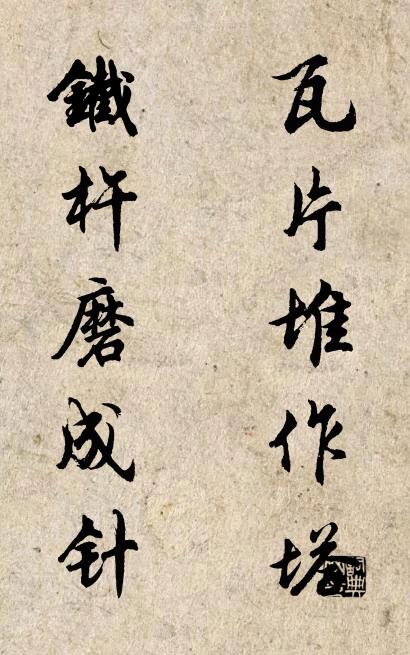 瓦片堆作塔
鐵杵磨成针